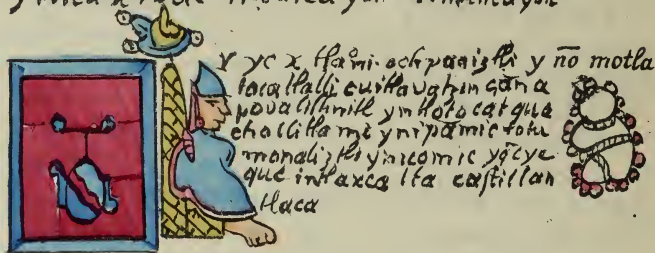 Y yc x tlāmi ochpaniztli y nō motla
tocatlalli cuitlaughzin çan na
povalilhuitl yn tlotocat que
cholli tlami yn ipā mic totu
monaliztli ynic omic yq̄c ye
que in tlaxcalta castillan
tlaca